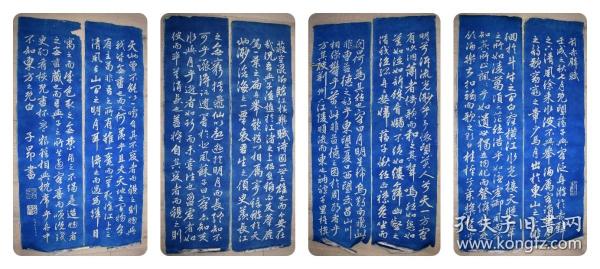 前赤壁賦
壬戌之秋七月既望蘇子與客泛舟遊於赤壁
之下清風徐來水波不興舉酒屬客誦明月
之詩歌窈窕之章少焉月出於東山之上徘
徊於斗牛之間白露橫江水光接天縱一葦之
所如凌萬頃之茫然浩浩乎如馮虛御風而不
知其所止飄飄乎如遺世獨立羽化而登仙於是
飲酒樂甚扣舷而歌之歌曰桂棹兮蘭槳擊空
明兮泝流光渺渺兮余懷望美人兮天一方客
有吹洞簫者倚歌而和之其聲嗚嗚然如怨如
慕如泣如訴餘音嫋嫋不絕如縷舞幽壑之
潛蛟泣孤舟之嫠婦蘇子愀然正襟危坐而
問客曰何為其然也客曰月明星稀烏鵲南飛此
非曹孟德之詩乎西望夏口東望武昌山川
相繆鬱乎蒼蒼此非孟德之困於周郎者乎
方其破荊州下江陵順流而東也舳艫千里旌旗
蔽空釃酒臨江橫槊賦詩固一世之雄也而今安在
哉況吾與子漁樵於江渚之上侶魚蝦而友麋鹿
駕一葉之扁舟舉匏樽以相屬寄蜉蝣於天
地渺滄海之一粟哀吾生之須臾羨長江
之無窮挾飛仙以遨遊抱明月而長終知不
可乎驟得託遺響於悲風蘇子曰客亦知夫
水與月乎逝者如斯而未嘗往也盈虛者如
彼而卒莫消長也蓋將自其變者而觀之則
天地曾不能以一瞬自其不變者而觀之則物與
我皆無盡也而又何羨乎且夫天地之間物各
有主苟非吾之所有雖一毫而莫取惟江上之
清風與山間之明月耳得之而為聲目
遇而成色取之無禁用之不竭是造物者
之無盡藏也而吾與子之所共適客喜而笑洗盞
更酌肴核既盡杯盤狼籍相與枕藉乎舟中
不知東方之既白 子昂書
孔夫子旧书网
www.kongfz.com